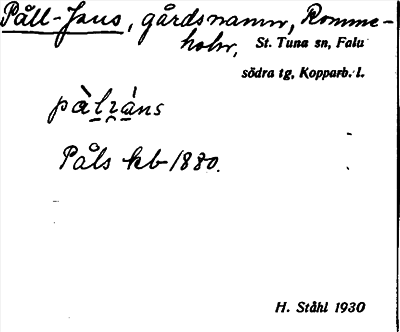 Påll-Jans, gårdsnamn, Romme-
holn, St. Tuna sn, Falu
södra tg, Kopparb. l.
pàlʒàns
Påls kb 1880.
H. Ståhl 1930